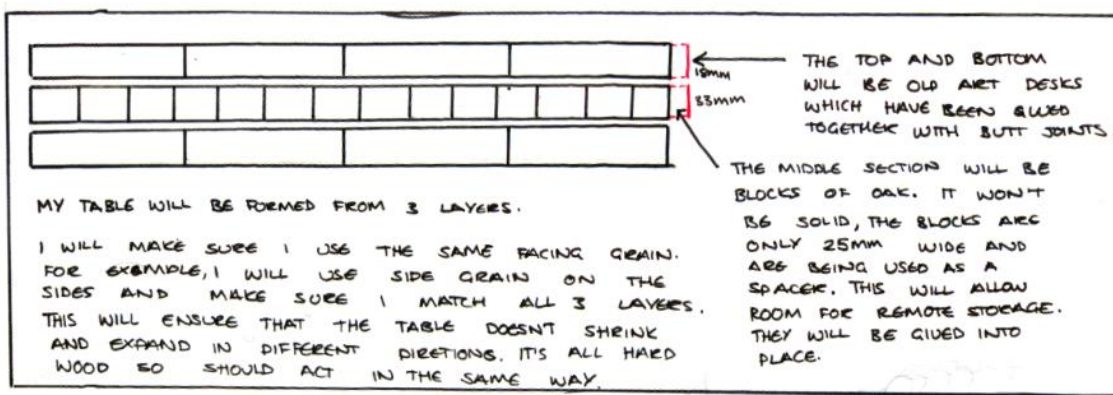 18mm
33mm
THE TOP AND BOTTOM
WILL BE OLD ART DESKS
WHICH HAVE BEEN GLUED
TOGETHER WITH BUTT JOINTS
THE MIDDLE SECTION WILL BE
BLOCKS OF OAK. IT WON'T
BE SOLID, THE BLOCKS ARE
ONLY 25MM WIDE AND
ARE BEING USED AS A
SPACER. THIS WILL ALLOW
ROOM FOR REMOTE STORAGE.
THEY WILL BE GLUED INTO
PLACE.
MY TABLE WILL BE FORMED FROM 3 LAYERS.
I WILL MAKE SURE I USE THE SAME FACING GRAIN.
FOR EXAMPLE, I WILL USE SIDE GRAIN ON THE
SIDES AND MAKE SURE I MATCH ALL 3 LAYERS.
THIS WILL ENSURE THAT THE TABLE DOESNT SHRINK
AND EXPAND IN DIFFERENT DIRETIONS. IT'S ALL HARD
WOOD SO SHOULD ACT IN THE SAME WAY.